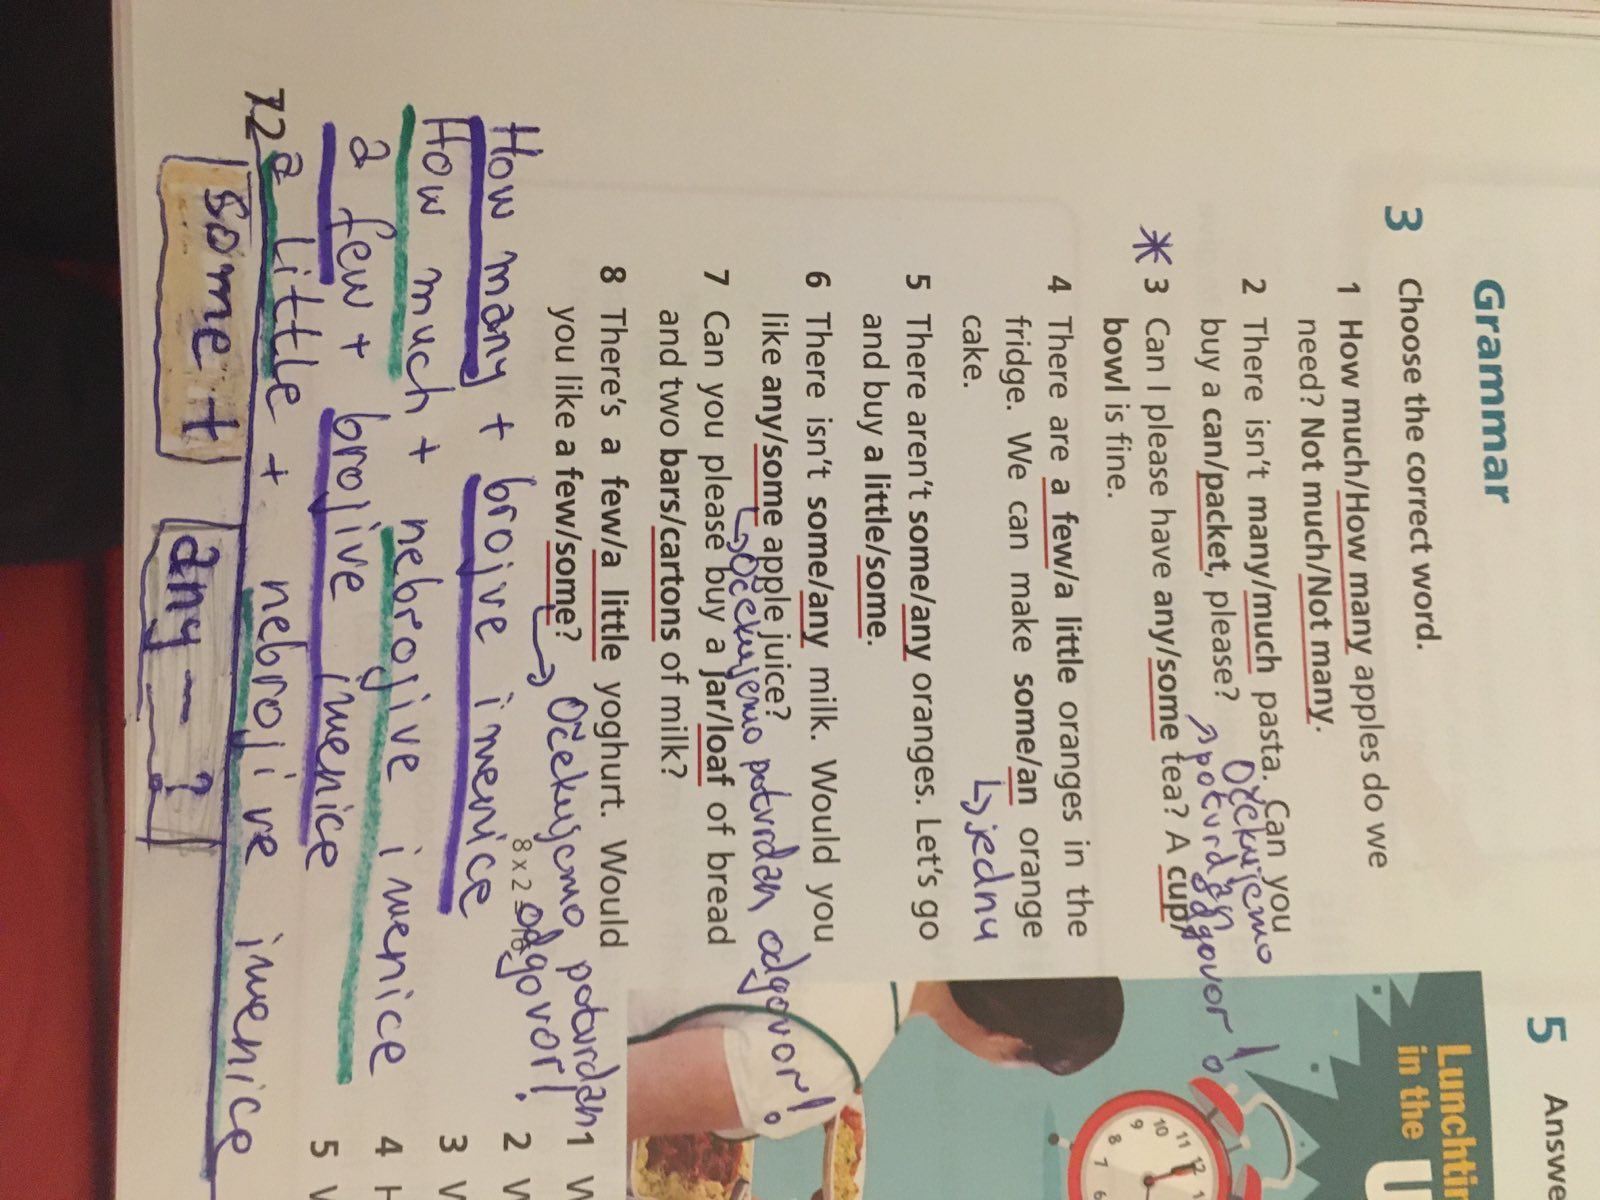 Grammar
3 Choose the correct word.
1 How much/How many apples do we
need? Not much/Not many.
2 There isn't many/much pasta. Can you
buy a can/packet, please?
Očekujemo
potvrdan
odgovor!
* 3 Can I please have any/some tea? A cup/
bowl is fine.
4 There are a few/a little oranges in the
fridge. We can make some/an orange
cake.
jednu
5 There aren't some/any oranges. Let's go
and buy a little/some.
6 There isn't some/any milk. Would you
like any/some apple juice?
Očekujemo potvrdan odgovor!
7 Can you please buy a jar/loaf of bread
and two bars/cartons of milk?
8 There's a few/a little yoghurt. Would
you like a few/some?
Očekujemo potvrdan
odgovor!
8 x 2 = 16
How many + brojive imenice
How much + nebrojive imenice
a few + brojive imenice
a little + nebrojive imenice
72
some +
any - ?
5 Answe
Lunchti
in the
U
11
12
1
10
9
8
7
6
1 W
2 W
3 V
4 H
5 V